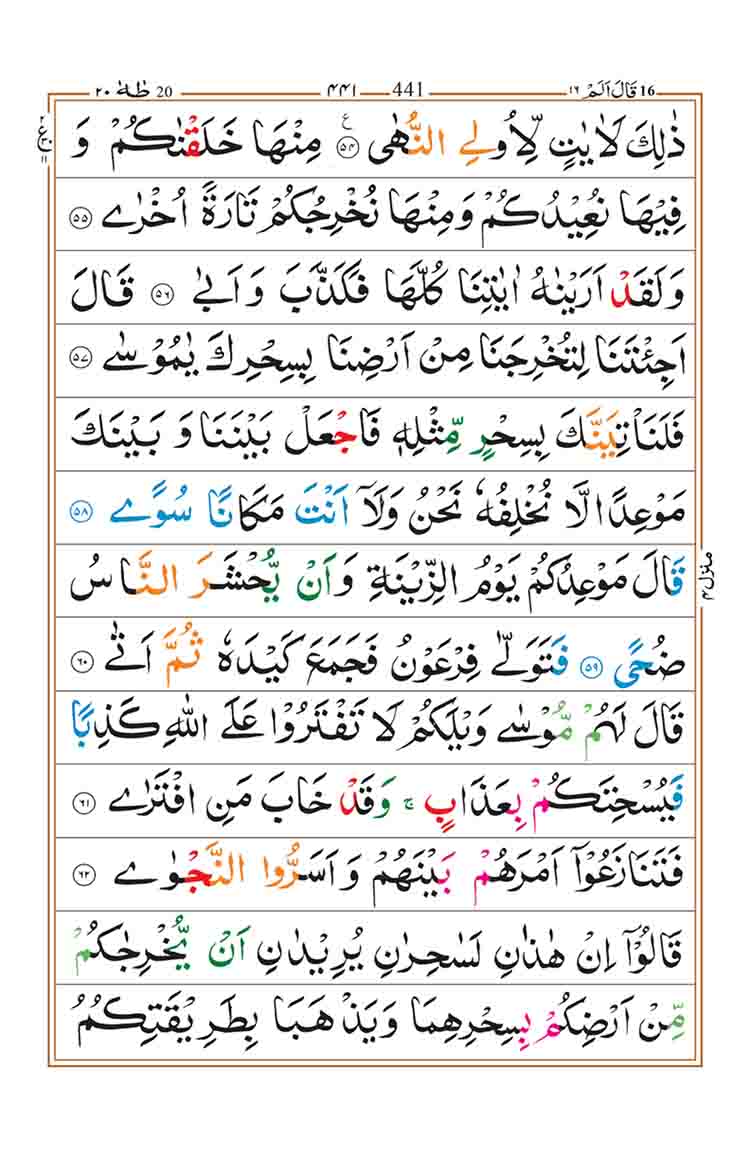 قَالَ اَلَمْ ١٦ 16 441 ٤٤١ 20 طٰهٰ ٢٠
ذٰلِكَ لَاٰيٰتٍ لِّاُولِي النُّهٰى ۝٥٤ ع مِنْهَا خَلَقْنٰكُمْ وَ
فِيْهَا نُعِيْدُكُمْ وَمِنْهَا نُخْرِجُكُمْ تَارَةً اُخْرٰى ۝٥٥
وَلَقَدْ اَرَيْنٰهُ اٰيٰتِنَا كُلَّهَا فَكَذَّبَ وَاَبٰى ۝٥٦ قَالَ
اَجِئْتَنَا لِتُخْرِجَنَا مِنْ اَرْضِنَا بِسِحْرِكَ يٰمُوْسٰى ۝٥٧
فَلَنَاْتِيَنَّكَ بِسِحْرٍ مِّثْلِهٖ فَاجْعَلْ بَيْنَنَا وَبَيْنَكَ
مَوْعِدًا لَّا نُخْلِفُهٗ نَحْنُ وَلَاۤ اَنْتَ مَكَانًا سُوًى ۝٥٨
قَالَ مَوْعِدُكُمْ يَوْمُ الزِّيْنَةِ وَاَنْ يُّحْشَرَ النَّاسُ
ضُحًى ۝٥٩ فَتَوَلّٰى فِرْعَوْنُ فَجَمَعَ كَيْدَهٗ ثُمَّ اَتٰى ۝٦٠
قَالَ لَهُمْ مُّوْسٰى وَيْلَكُمْ لَا تَفْتَرُوْا عَلَى اللّٰهِ كَذِبًا
فَيُسْحِتَكُمْ بِعَذَابٍ ۚ وَقَدْ خَابَ مَنِ افْتَرٰى ۝٦١
فَتَنَازَعُوْۤا اَمْرَهُمْ بَيْنَهُمْ وَاَسَرُّوا النَّجْوٰى ۝٦٢
قَالُوْۤا اِنْ هٰذٰنِ لَسٰحِرٰنِ يُرِيْدٰنِ اَنْ يُّخْرِجٰكُمْ
مِّنْ اَرْضِكُمْ بِسِحْرِهِمَا وَيَذْهَبَا بِطَرِيْقَتِكُمُ
منزل ٤